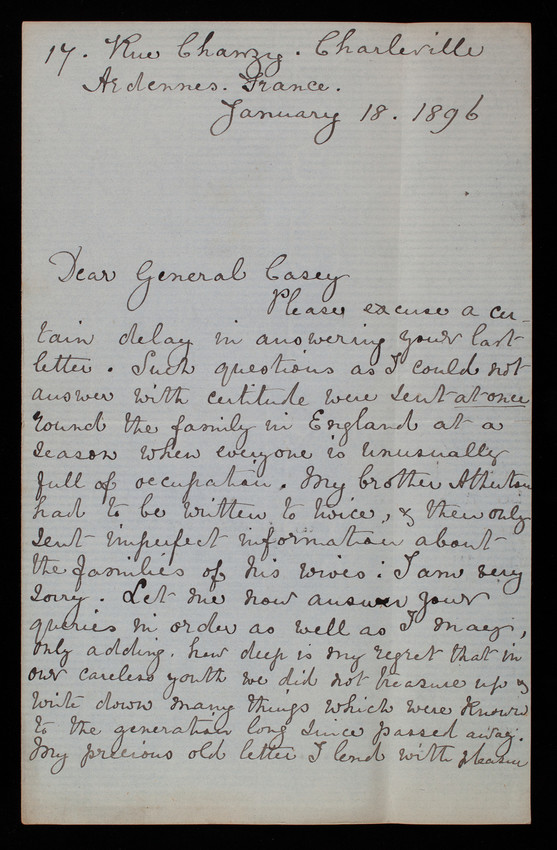 17. Rue Chanzy. Charleville
Ardennes. France.
January 18. 1896
Dear General Casey
Please excuse a cer-
tain delay in answering your last
letter. Such questions as I could not
answer with certitude were sent at once
round the family in England at a
season when everyone is unusually
full of occupation. My brother Atherton
had to be written to twice, & then only
sent imperfect information about
the families of his wives: I am very
sorry. Let me now answer your
queries in order as well as I may,
only adding, how deep is my regret that in
our careless youth we did not treasure up &
write down many things which were known
to the generation long since passed away.
My precious old letter I lend with pleasure